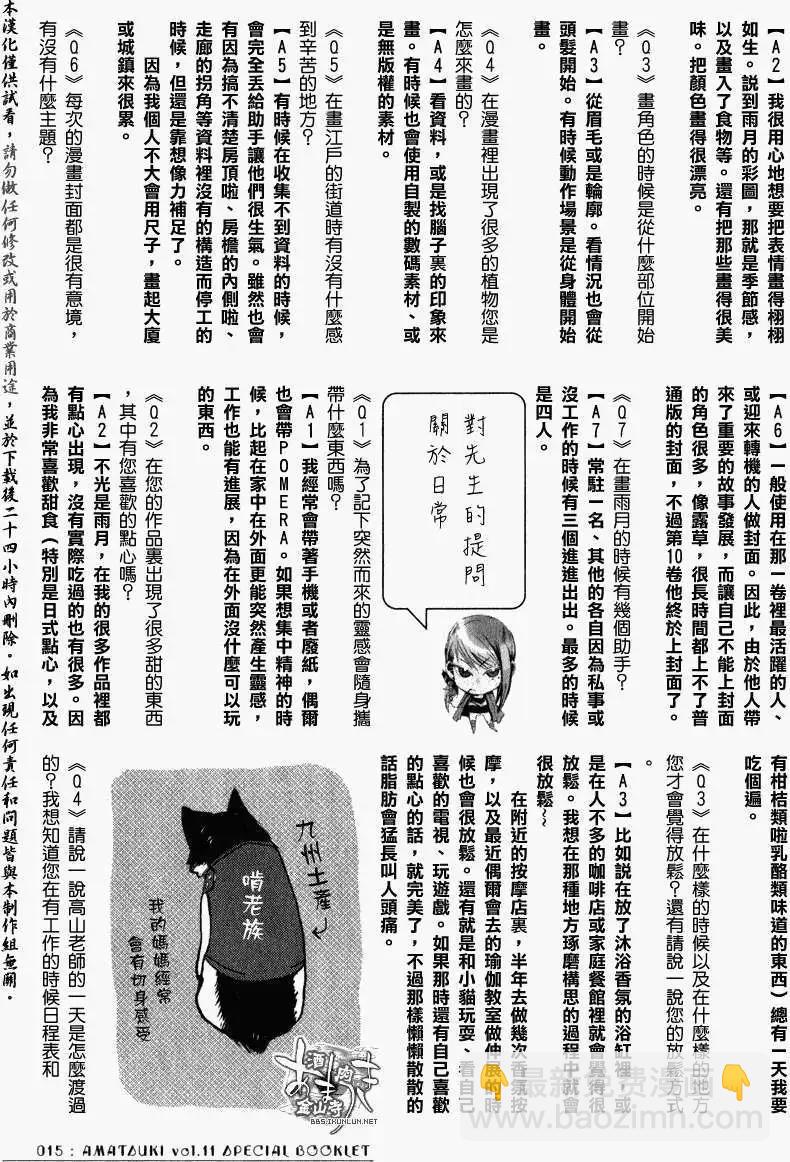 【A2】我很用心地想要把表情畫得栩栩
如生。説到雨月的彩圖，那就是季節感，
以及畫入了食物等。還有把那些畫得很美
味。把顏色畫得很漂亮。
《Q3》畫角色的時候是從什麼部位開始
畫？
【A3】從眉毛或是輪廓。看情況也會從
頭髮開始。有時候動作場景是從身體開始
畫。
《Q4》在漫畫裡出現了很多的植物您是
怎麼來畫的？
【A4】看資料，或是找腦子裏的印象來
畫。有時候也會使用自製的數碼素材、或
是無版權的素材。
《Q5》在畫江戶的街道時有沒有什麼感
到辛苦的地方？
【A5】有時候在收集不到資料的時候，
會完全丟給助手讓他們很生氣。雖然也會
有因為搞不清楚房頂啦、房檐的內側啦、
走廊的拐角等資料裡沒有的構造而停工的
時候，但還是靠想像力補足了。
因為我個人不大會用尺子，畫起大廈
或城鎮來很累。
《Q6》每次的漫畫封面都是很有意境，
有沒有什麼主題？
【A6】一般使用在那一卷裡最活躍的人、
或迎來轉機的人做封面。因此，由於他人帶
來了重要的故事發展，而讓自己不能上封面
的角色很多，像露草，很長時間都上不了普
通版的封面，不過第10卷他終於上封面了。
《Q7》在畫雨月的時候有幾個助手？
【A7】常駐一名、其他的各自因為私事或
沒工作的時候有三個進進出出。最多的時候
是四人。
對先生的提問
關於日常
《Q1》為了記下突然而來的靈感會隨身攜
帶什麼東西嗎？
【A1】我經常會帶著手機或者廢紙，偶爾
也會帶POMERA。如果想集中精神的時
候，比起在家中在外面更能突然產生靈感，
工作也能有進展，因為在外面沒什麼可以玩
的東西。
《Q2》在您的作品裏出現了很多甜的東西
，其中有您喜歡的點心嗎？
【A2】不光是雨月，在我的很多作品裡都
有點心出現，沒有實際吃過的也有很多。因
為我非常喜歡甜食（特別是日式點心，以及
有柑桔類啦乳酪類味道的東西）總有一天我要
吃個遍。
《Q3》在什麼樣的時候以及在什麼樣的地方
您才會覺得放鬆？還有請說一說您的放鬆方式
。
【A3】比如說在放了沐浴香氛的浴缸裡，或
是在人不多的咖啡店或家庭餐館裡就會覺得很
放鬆。我想在那種地方琢磨構思的過程中就會
很放鬆～
在附近的按摩店裏，半年去做幾次香氛按
摩，以及最近偶爾會去的瑜伽教室做伸展的時
候也會很放鬆。還有就是和小貓玩耍、看自己
喜歡的電視、玩遊戲。如果那時還有自己喜歡
的點心的話，就完美了，不過那樣懶懶散散的
話脂肪會猛長叫人頭痛。
九州土產
啃老族
我的媽媽經常
會有切身感受
《Q4》請說一說高山老師的一天是怎麼渡過
的？我想知道您在有工作的時候日程表和
本漢化僅供試看，請勿做任何修改或用於商業用途，並於下載後二十四小時內刪除。如出現任何責任和問題皆與本制作組無關。
BBS.IKUNLUN.NET
最新免费漫画
baozimh.com
015：AMATSUKI vol.11 SPECIAL BOOKLET